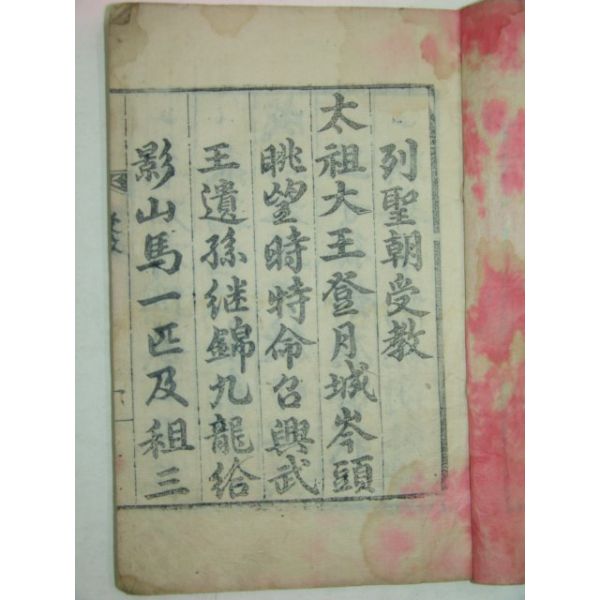 列聖朝受教
太祖大王登月城岑頭
眺望時特命召興武
王遺孫继錦九龍給
影山馬一匹及租三
受教